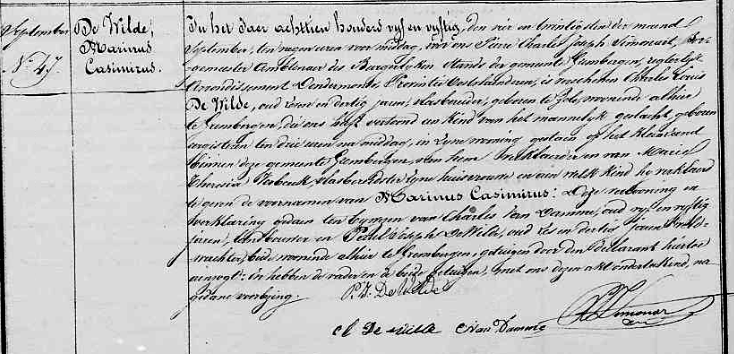 September
N.º 47.
De Wilde,
Marinus
Casimirus.
In het jaer achttien honderd vyf en vyftig, den vier en twintigsten der maend
September, ten negen uren voor middag, voor ons Pierre Charles Joseph Limonart,
Ambtenaer des Burgerlyken Stands der gemeente Grembergen, regterlyk
Arrondissement Dendermonde, Provintie Oostvlaenderen, is verschenen Charles Louis
De Wilde, oud en dertig jaren, vlasbreider, geboren te woonende alhier
te Grembergen, die ons heeft vertoond een kind van het mannelyk geslacht, geboren
eergisteren ten drie uren na middag, in zyne wooning gestaen op het
binnen deze gemeente Grembergen, van hem verklaerder en van Maria
Theresia vlasbereidster zyne huisvrouw en aen welk kind hy verklaerd
te geven de voornamen van Marinus Casimirus: Deze vertooning en
verklaring gedaen ten byzyn van Charles Van Damme, oud vyf en vyftig
jaren, en De Wilde, oud zes en dertig jaren,
beide woonende alhier te Grembergen, getuigen door den Declarant hiertoe
en hebben de vader en de beide getuigen, met ons dezen akt onderteekend, na
gedane voorlezing.
P. J. De Wilde
C L De Wilde C Van Damme